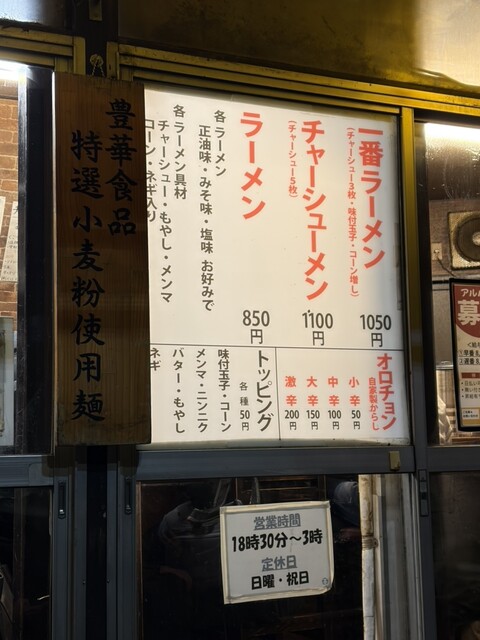 一番ラーメン
(チャーシュー3枚・味付玉子・コーン増し)
1050円
チャーシューメン
(チャーシュー5枚)
1100円
ラーメン
850円
各ラーメン
正油味・みそ味・塩味 お好みで
各ラーメン具材
チャーシュー・もやし・メンマ
コーン・ネギ入り
オロチョン
自家製からし
小辛 50円
中辛 100円
大辛 150円
激辛 200円
トッピング
各種50円
味付玉子・コーン
メンマ・ニンニク
バター・もやし
ネギ
豊華食品
特選小麦粉使用麺
営業時間
18時30分～3時
定休日
日曜・祝日
アル
募